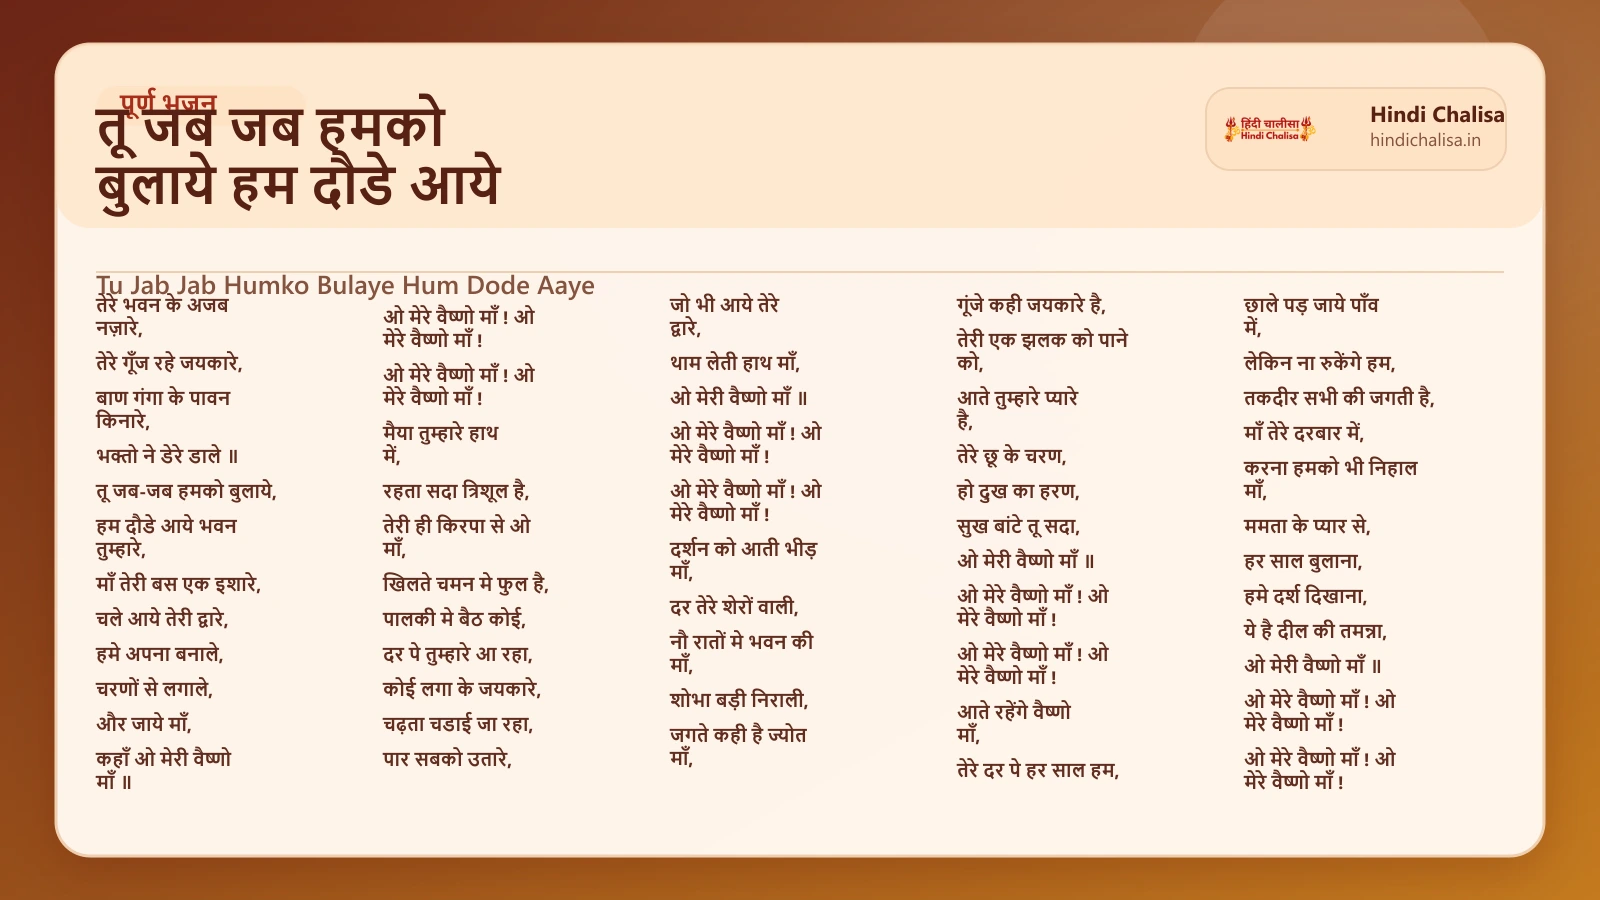 पूर्ण भजन
तू जब जब हमको
बुलाये हम दौडे आये
हिंदी चालीसा
Hindi Chalisa
Hindi Chalisa
hindichalisa.in
Tu Jab Jab Humko Bulaye Hum Dode Aaye
तेरे भवन के अजब
नज़ारे,
तेरे गूँज रहे जयकारे,
बाण गंगा के पावन
किनारे,
भक्तो ने डेरे डाले ॥
तू जब-जब हमको बुलाये,
हम दौडे आये भवन
तुम्हारे,
माँ तेरी बस एक इशारे,
चले आये तेरी द्वारे,
हमे अपना बनाले,
चरणों से लगाले,
और जाये माँ,
कहाँ ओ मेरी वैष्णो
माँ ॥
ओ मेरे वैष्णो माँ ! ओ
मेरे वैष्णो माँ !
ओ मेरे वैष्णो माँ ! ओ
मेरे वैष्णो माँ !
मैया तुम्हारे हाथ
में,
रहता सदा त्रिशूल है,
तेरी ही किरपा से ओ
माँ,
खिलते चमन मे फुल है,
पालकी मे बैठ कोई,
दर पे तुम्हारे आ रहा,
कोई लगा के जयकारे,
चढ़ता चडाई जा रहा,
पार सबको उतारे,
जो भी आये तेरे
द्वारे,
थाम लेती हाथ माँ,
ओ मेरी वैष्णो माँ ॥
ओ मेरे वैष्णो माँ ! ओ
मेरे वैष्णो माँ !
ओ मेरे वैष्णो माँ ! ओ
मेरे वैष्णो माँ !
दर्शन को आती भीड़
माँ,
दर तेरे शेरों वाली,
नौ रातों मे भवन की
माँ,
शोभा बड़ी निराली,
जगते कही है ज्योत
माँ,
गूंजे कही जयकारे है,
तेरी एक झलक को पाने
को,
आते तुम्हारे प्यारे
है,
तेरे छू के चरण,
हो दुख का हरण,
सुख बांटे तू सदा,
ओ मेरी वैष्णो माँ ॥
ओ मेरे वैष्णो माँ ! ओ
मेरे वैष्णो माँ !
ओ मेरे वैष्णो माँ ! ओ
मेरे वैष्णो माँ !
आते रहेंगे वैष्णो
माँ,
तेरे दर पे हर साल हम,
छाले पड़ जाये पाँव
में,
लेकिन ना रुकेंगे हम,
तकदीर सभी की जगती है,
माँ तेरे दरबार में,
करना हमको भी निहाल
माँ,
ममता के प्यार से,
हर साल बुलाना,
हमे दर्श दिखाना,
ये है दील की तमन्ना,
ओ मेरी वैष्णो माँ ॥
ओ मेरे वैष्णो माँ ! ओ
मेरे वैष्णो माँ !
ओ मेरे वैष्णो माँ ! ओ
मेरे वैष्णो माँ !